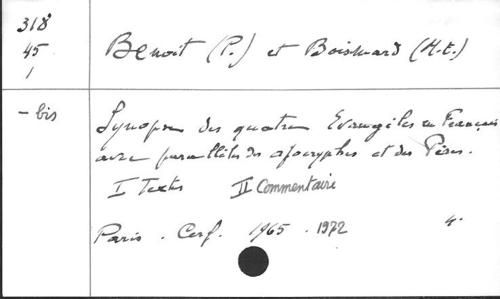 318
45
1
Benoit (P.) et Boismard (M.E.)
- bis
Synopse des quatre Evangiles en Français
avec parallèles des apocryphes et des Pères.
I Textes II Commentaire
Paris . Cerf . 1965 . 1972 4°